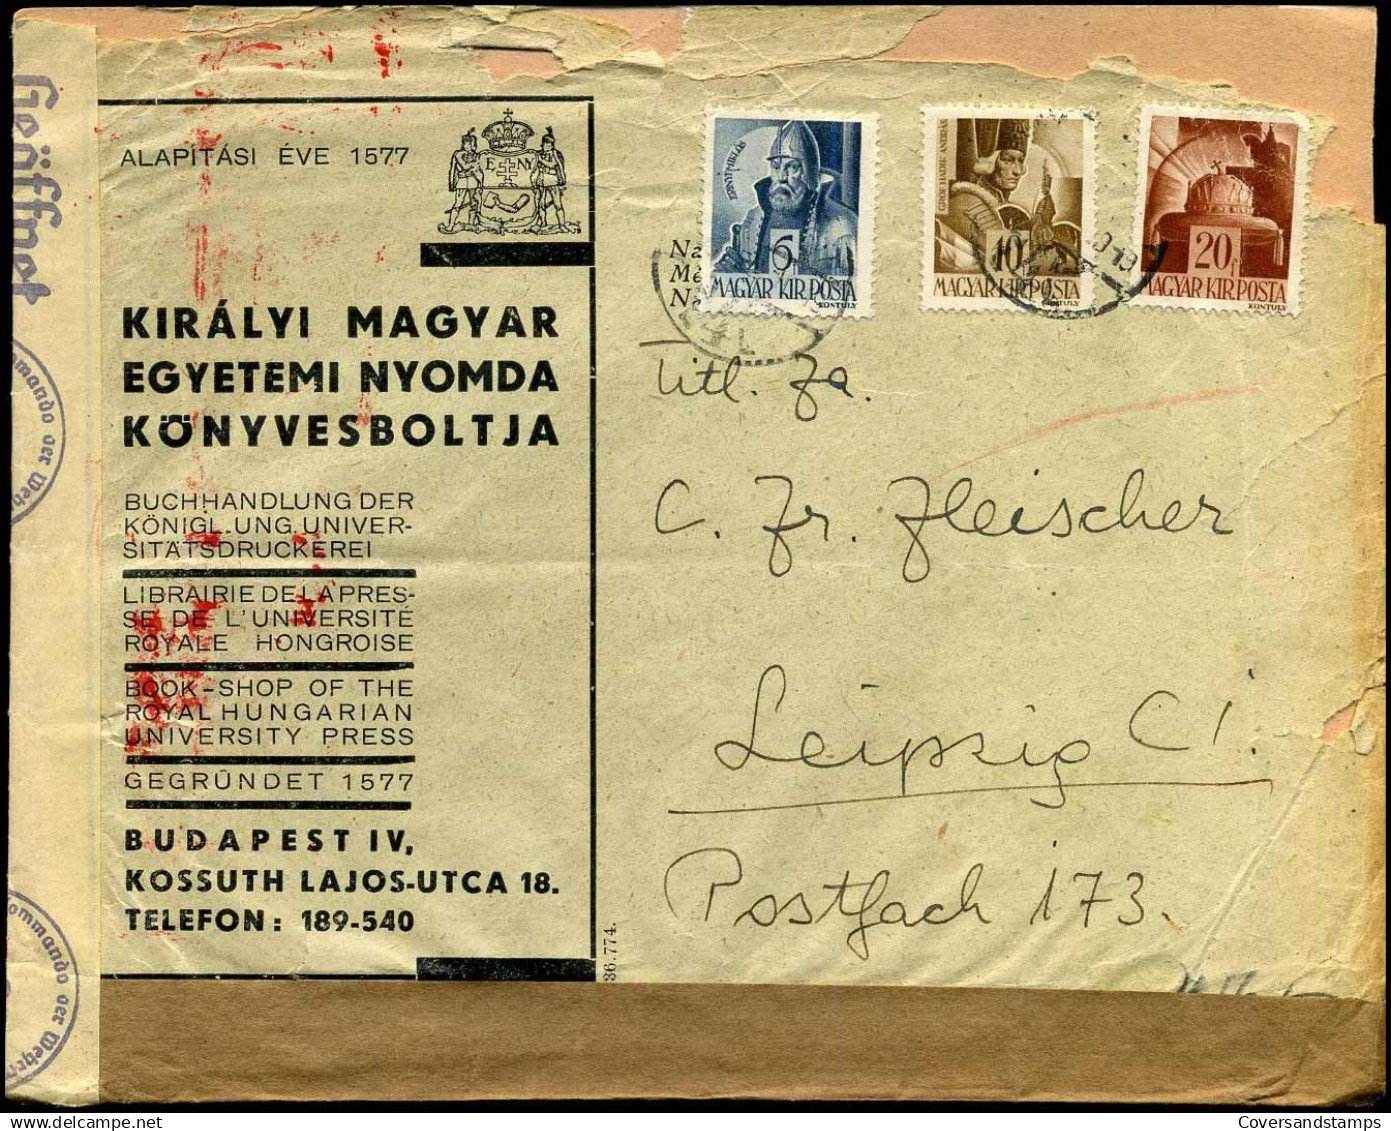 Geöffnet
ALAPÍTÁSI ÉVE 1577
E NY
KIRÁLYI MAGYAR
EGYETEMI NYOMDA
KÖNYVESBOLTJA
BUCHHANDLUNG DER
KÖNIGL.UNG.UNIVER-
SITÄTSDRUCKEREI
LIBRAIRIE DE LA PRES-
SE DE L'UNIVERSITÉ
ROYALE HONGROISE
BOOK-SHOP OF THE
ROYAL HUNGARIAN
UNIVERSITY PRESS
GEGRÜNDET 1577
BUDAPEST IV,
KOSSUTH LAJOS-UTCA 18.
TELEFON: 189-540
36.774.
6f
MAGYAR KIR. POSTA
KONTULY
GRÓF HADIK ANDRÁS
10f
MAGYAR KIR. POSTA
KONTULY
20f
MAGYAR KIR. POSTA
KONTULY
Titl. Fa.
C. Fr. Fleischer
Leipzig C1.
Postfach 173.
ommando der Weh
ommando der Wehr
Coversandstamps